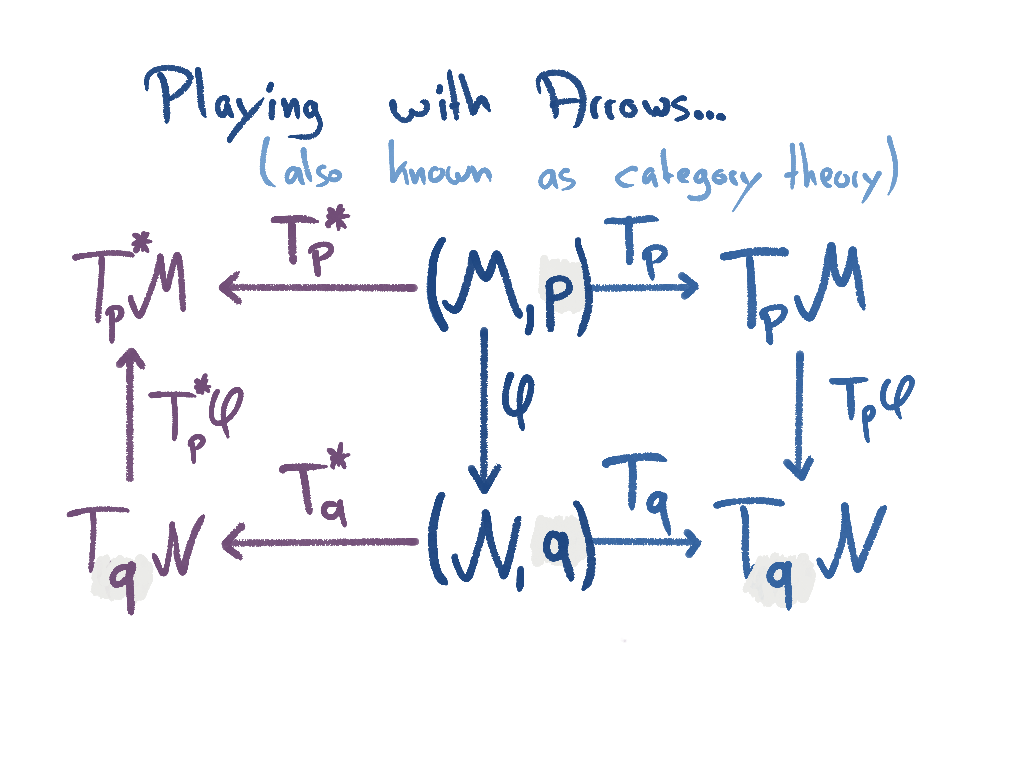 Playing with Arrows...
(also known as category theory)
T_p^* T_p
T_p^*M (M, p) T_pM
φ
T_p^*φ T_pφ
T_q^* T_q
T_qN (N, q) T_qN